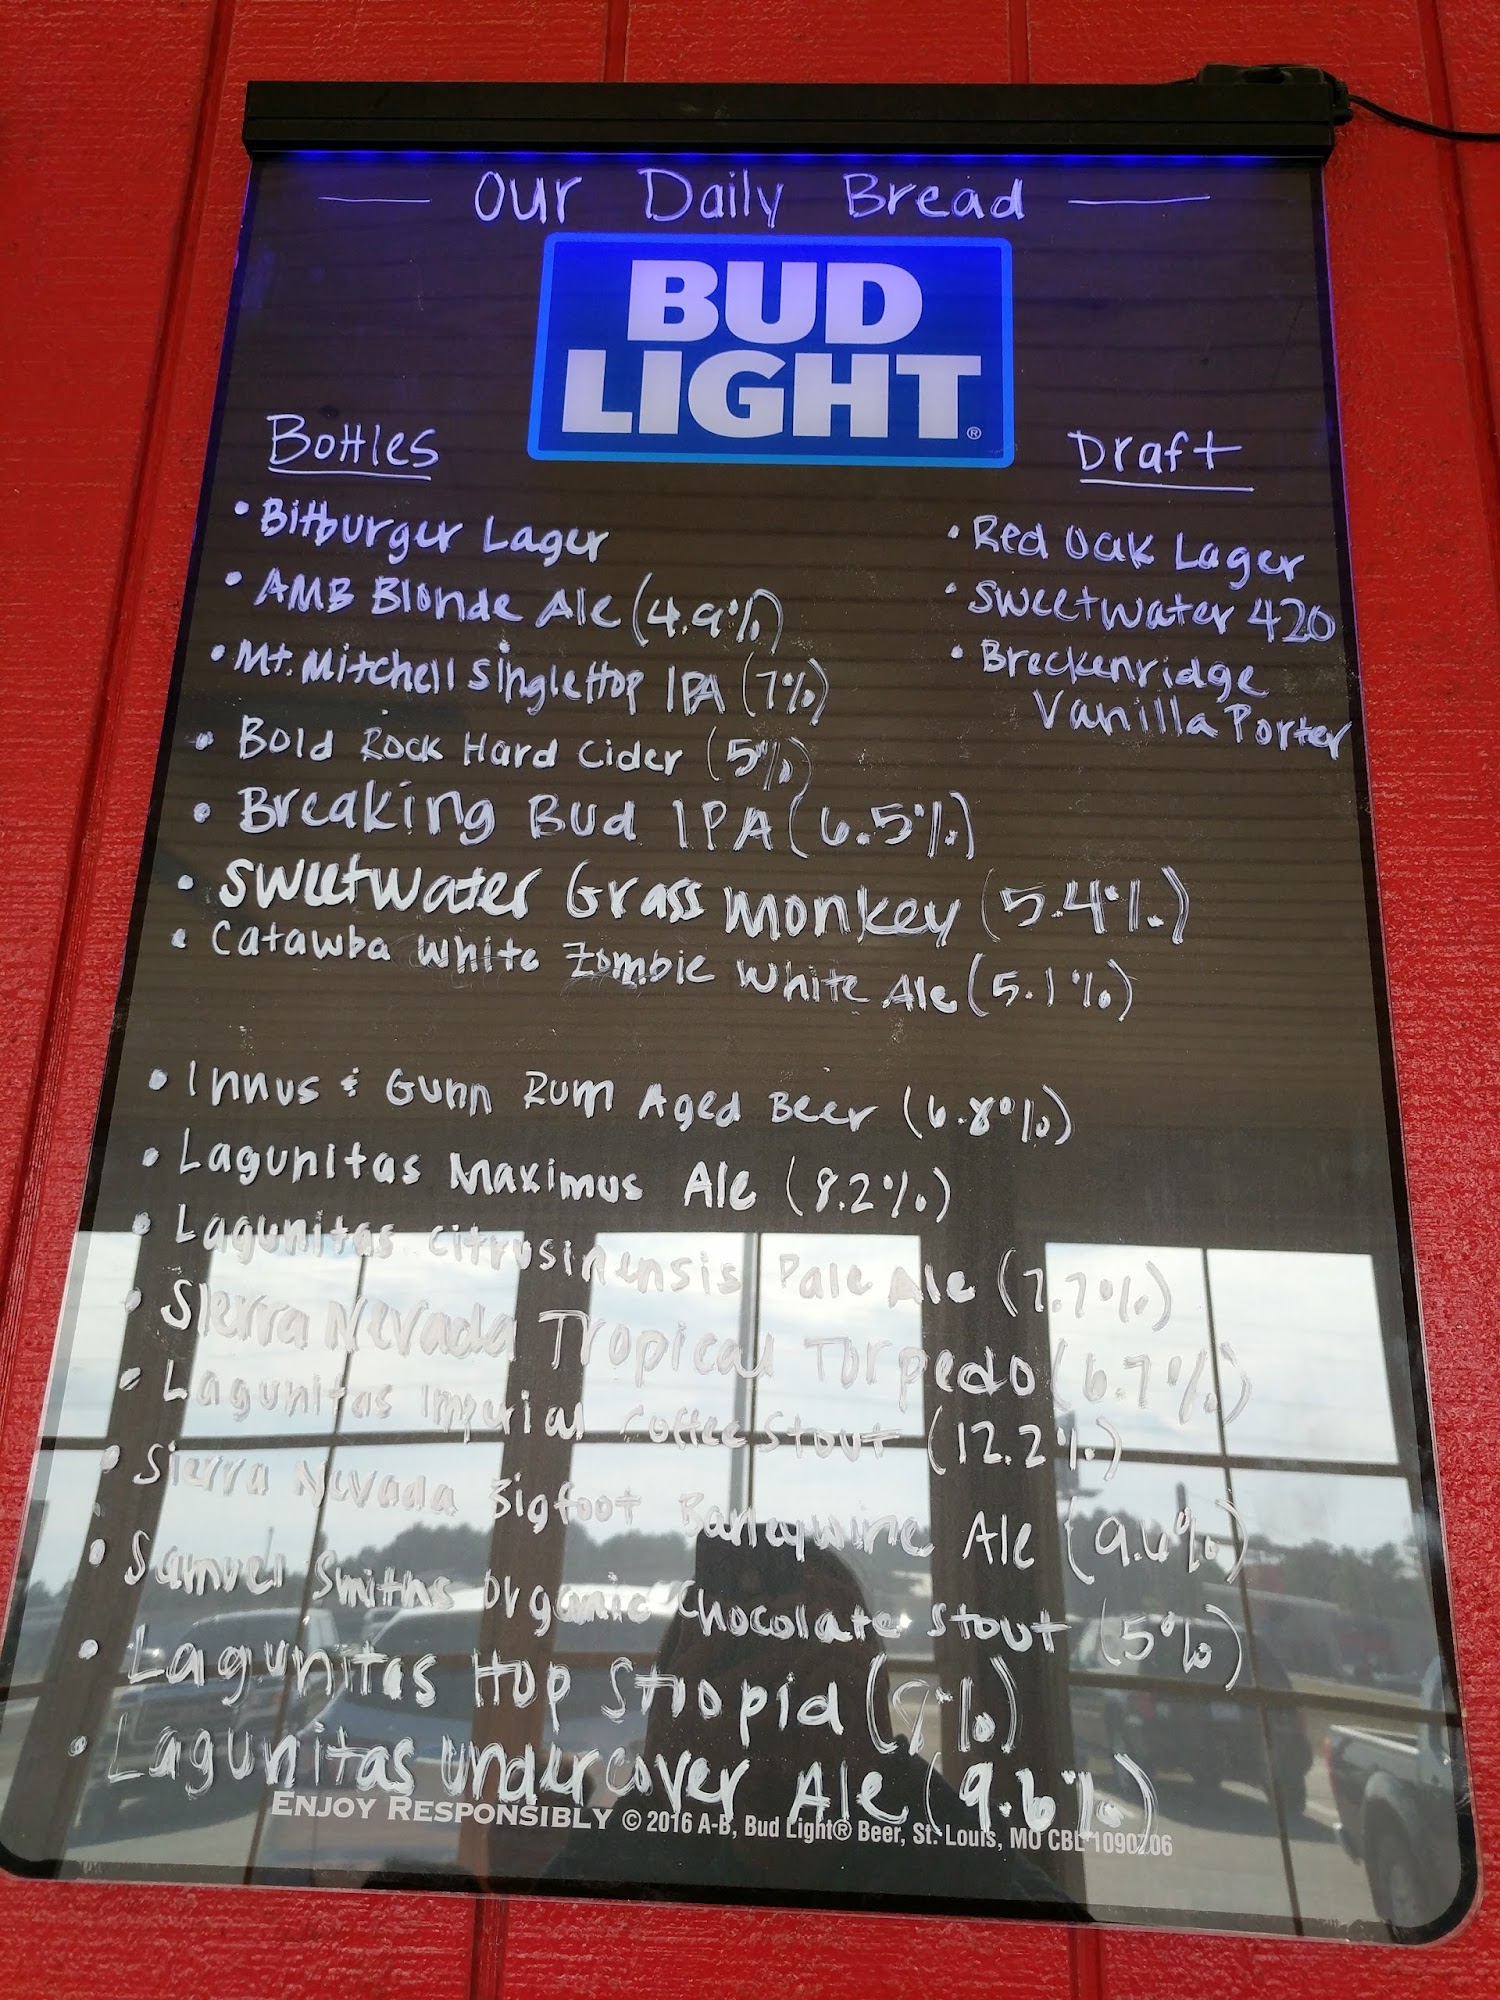 Our Daily Bread
BUD
LIGHT®
Bottles
• Bitburger Lager
• AMB Blonde Ale (4.9%)
• Mt. Mitchell Single Hop IPA (7%)
• Bold Rock Hard Cider (5%)
• Breaking Bud IPA (6.5%)
• Sweetwater Grass Monkey (5.4%)
• Catawba White Zombie White Ale (5.1%)
• Innus & Gunn Rum Aged Beer (6.8%)
• Lagunitas Maximus Ale (8.2%)
• Lagunitas Citrusinensis Pale Ale (7.7%)
• Sierra Nevada Tropical Torpedo (6.7%)
• Lagunitas Imperial Coffee Stout (12.2%)
• Sierra Nevada Bigfoot Barleywine Ale (9.6%)
• Samuel Smiths Organic Chocolate Stout (5%)
• Lagunitas Hop Stoopid (8%)
• Lagunitas Undercover Ale (9.6%)
Draft
• Red Oak Lager
• Sweetwater 420
• Breckenridge
Vanilla Porter
ENJOY RESPONSIBLY © 2016 A-B, Bud Light® Beer, St. Louis, MO CBL 1090206